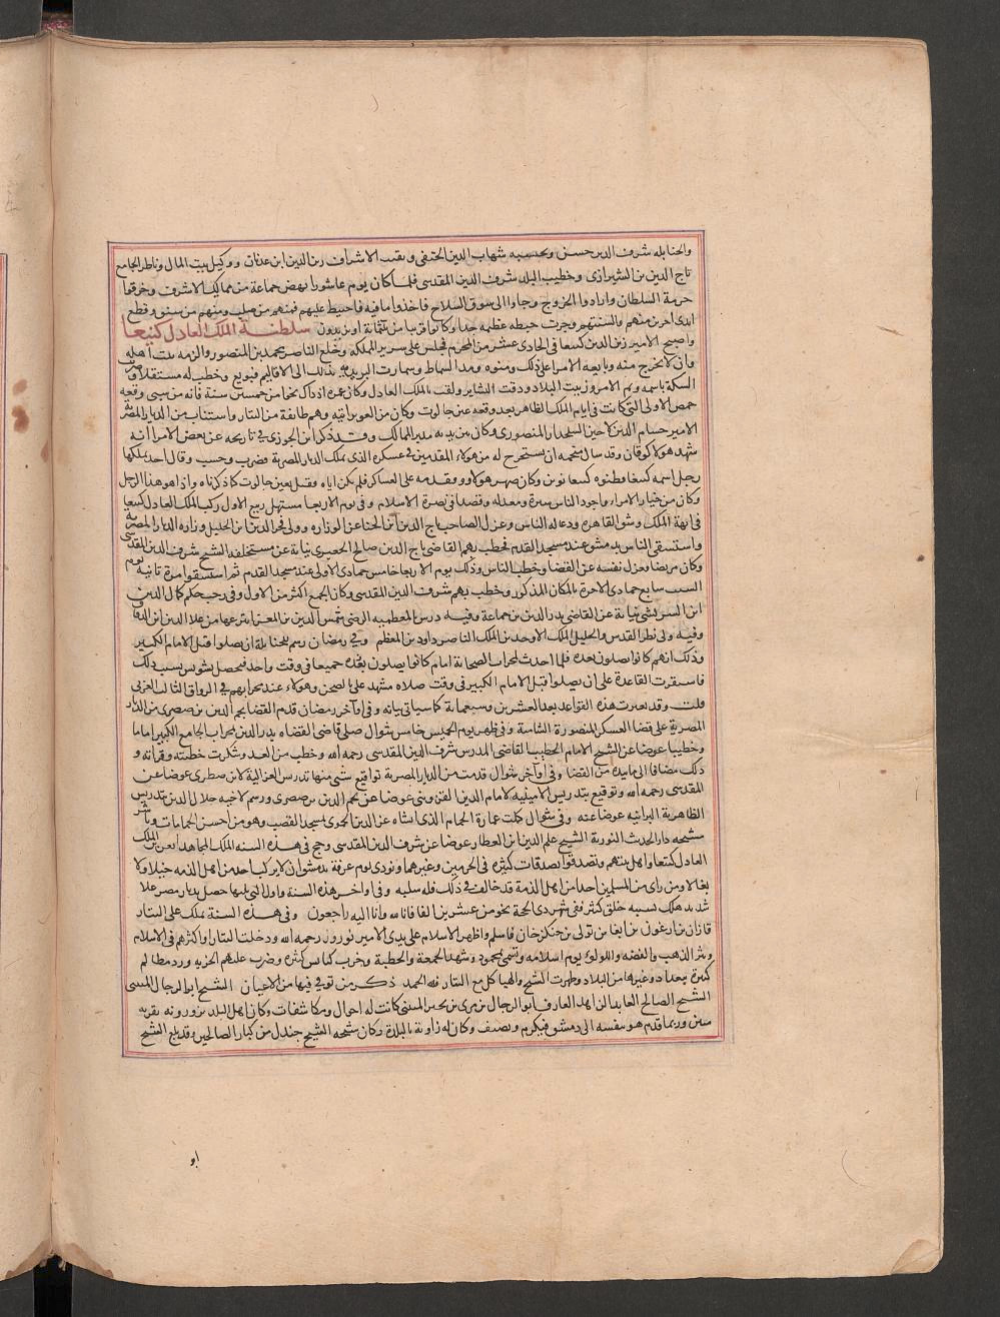 والحنابله شرف الدين حسن ومحتسبه شهاب الدين الحنفى ونقيب الاشراف زين الدين ابن عدنان ووكيل بيت المال وناظر الجامع
تاج الدين بن الشيرازى وخطيب البلد شرف الدين المقدسى فلما كان يوم عاشورا نهض جماعة من مماليك الاشرف وخرقوا
حرمة السلطان وارادوا الخروج وجاوا الى سوق السلاح فاخذوا ما فيه فاحيط عليهم فمنهم من صلب ومنهم من شنق وقطع
ايدى اخرين منهم والسنتهم وجرت خبطه عظيمه جدا وكانوا قريبا من ثلثمائة او يزيدون سلطنة الملك العادل كتبغا
واصبح الامير زين الدين كتبغا فى الحادى عشر من المحرم فجلس على سرير المملكة وخلع الناصر محمد بن المنصور والزمه بيت اهله
وان لا يخرج منه وبايعه الامرا على ذلك وهنوه ومد السماط وسارت البريديه بذلك الى الاقاليم فبويع وخطب له مستقلا وضربت
السكة باسمه وتم الامر وزينت البلاد ودقت البشاير ولقب بالملك العادل وكان عمره اذ ذاك نحوا من خمسين سنة فانه من سبى وقعة
حمص الاولى التى كانت فى ايام الملك الظاهر بعد وقعه عين جالوت وكان من العويراتيه وهم طائفة من التتار واستناب بين الديار المصريه
الامير حسام الدين لاجين السلحدار المنصورى وكان بين يديه مدبر الممالك وقد ذكر ابن الجوزى فى تاريخه عن بعض الامرا انه
شهد هولاكو قان وقد سال منجمه ان يستخرج له من هولاء المقدمين فى عسكره الذى يملك الديار المصرية فضرب وحسب وقال اجد يملكها
رجل اسمه كتبغا فظنوه كتبغا نوين وكان صهر هولاكو وقدمه على العساكر فلم يكن اياه وقتل بعين جالوت كما ذكرناه واذا هو هذا الرجل
وكان من خيار الامراء واجود الناس سيرة ومعدله وقصدا فى نصرة الاسلام وفى يوم الاربعا مستهل ربيع الاول ركب الملك العادل كتبغا
فى ابهة الملك وشق القاهره ودعا له الناس وعزل الصاحب تاج الدين بن الحنا عن الوزاره وولى فخر الدين بن الخليل وزاره الديار المصريه
واستسقى الناس بدمشق عند مسجد القدم فخطب بهم القاضى تاج الدين صالح الجعبرى نيابة عن مستخلفه الشيخ شرف الدين المقدسى
وكان مريضا فعزل نفسه عن القضا وخطب الناس وذلك يوم الاربعا خامس جمادى الاولى عند مسجد القدم ثم استسقوا مرة ثانية يوم
السبت سابع جمادى الاخرة بالمكان المذكور وخطب بهم شرف الدين المقدسى وكان الجمع اكثر من الاول وفى رجب حكم كمال الدين
ابن الشريشى نيابة عن القاضى بدر الدين بن جماعة وفيه درس بالمعظميه القاضى شمس الدين بن العز انتزعها من علا الدين ابن الدقاق
وفيه ولى نظر القدس والخليل الملك الاوحد بن الملك الناصر داود بن المعظم وفى رمضان رسم للحنابلة ان يصلوا قبل الامام الكبير
وذلك انهم كانوا يصلون بعده فلما احدث لمحراب الصحابة امام كانوا يصلون بعده جميعا فى وقت واحد فيحصل تشويش بسبب ذلك
فاستقرت القاعدة على ان يصلوا قبل الامام الكبير فى وقت صلاه مشهد على بالصحن وهولاء عند محرابهم فى الرواق الثالث الغربى
قلت وقد تغيرت هذه القواعد بعد العشرين وسبعمائة كما سياتى بيانه وفى اواخر رمضان قدم القضا نجم الدين بن صصرى من الديار
المصرية على قضا العسكر المنصورة الشامية وفى ظهر يوم الخميس خامس شوال صلى قاضى القضاه بدر الدين بمحراب الجامع الكبير اماما
وخطيبا عوضا عن الشيخ الامام الخطيب القاضى المدرس شرف الدين المقدسى رحمه الله وخطب من الغد وشكرت خطبته وقراته و
ذلك مضافا الى ما بيده من القضا وفى اواخر شوال قدمت من الديار المصرية تواقيع شتى منها تدريس الغزالية لابن صصرى عوضا عن
المقدسى رحمه الله وتوقيع بتدريس الامينيه لامام الدين القزوينى عوضا عن نجم الدين بن صصرى ورسم لاخيه جلال الدين بتدريس
الظاهرية البرانيه عوضا عنه وفى شوال كملت عمارة الحمام الذى انشاه عز الدين الحموى بمسجد القصب وهو من احسن الحمامات وباشر
مشيخه دار الحديث النورية الشيخ علم الدين ابن العطار عوضا عن شرف الدين المقدسى وحج فى هذه السنه الملك المجاهد انص بن الملك
العادل كتبغا واهل بيتهم وتصدقوا بصدقات كثيرة فى الحرمين وغيرهما ونودى يوم عرفة بدمشق ان لا يركب احد من اهل الذمه خيلا ولا
بغالا ومن راى من المسلمين احدا من اهل الذمة قد خالف فى ذلك فله سلبه وفى اواخر هذه السنة واول التى تليها حصل بديار مصر غلا
شديد هلك بسببه خلق كثير ففى شهر ذى الحجة نحو من عشرين الفا فانا لله وانا اليه راجعون وفى هذه السنة ملك على التتار
قازان بن ارغون بن ابغا بن تولى بن جنكز خان فاسلم واظهر الاسلام على يدى الامير نوروز رحمه الله ودخلت التتار او اكثرهم فى الاسلام
ونثر الذهب والفضه واللولو يوم اسلامه وتسمى بمحمود وشهد الجمعة والخطبة وخرب كنايس كثيره وضرب عليهم الجزيه ورد مظالم
كثيرة ببغداد وغيرها من البلاد وظهرت السبح والهياكل مع التتار فلله الحمد ذكر من توفى فيها من الاعيان الشيخ ابو الرجال المنينى
الشيخ الصالح العابد الزاهد العارف ابو الرجال بن مرى بن بحتر المنينى كانت له احوال ومكاشفات وكان اهل البلد يزورونه بقريه
منين وربما قدم هو بنفسه الى دمشق فيكرم ويضيف وكان له زاوية بالبلدة وكان شيخه الشيخ جندل من كبار الصالحين وقد بلغ الشيخ
ابو